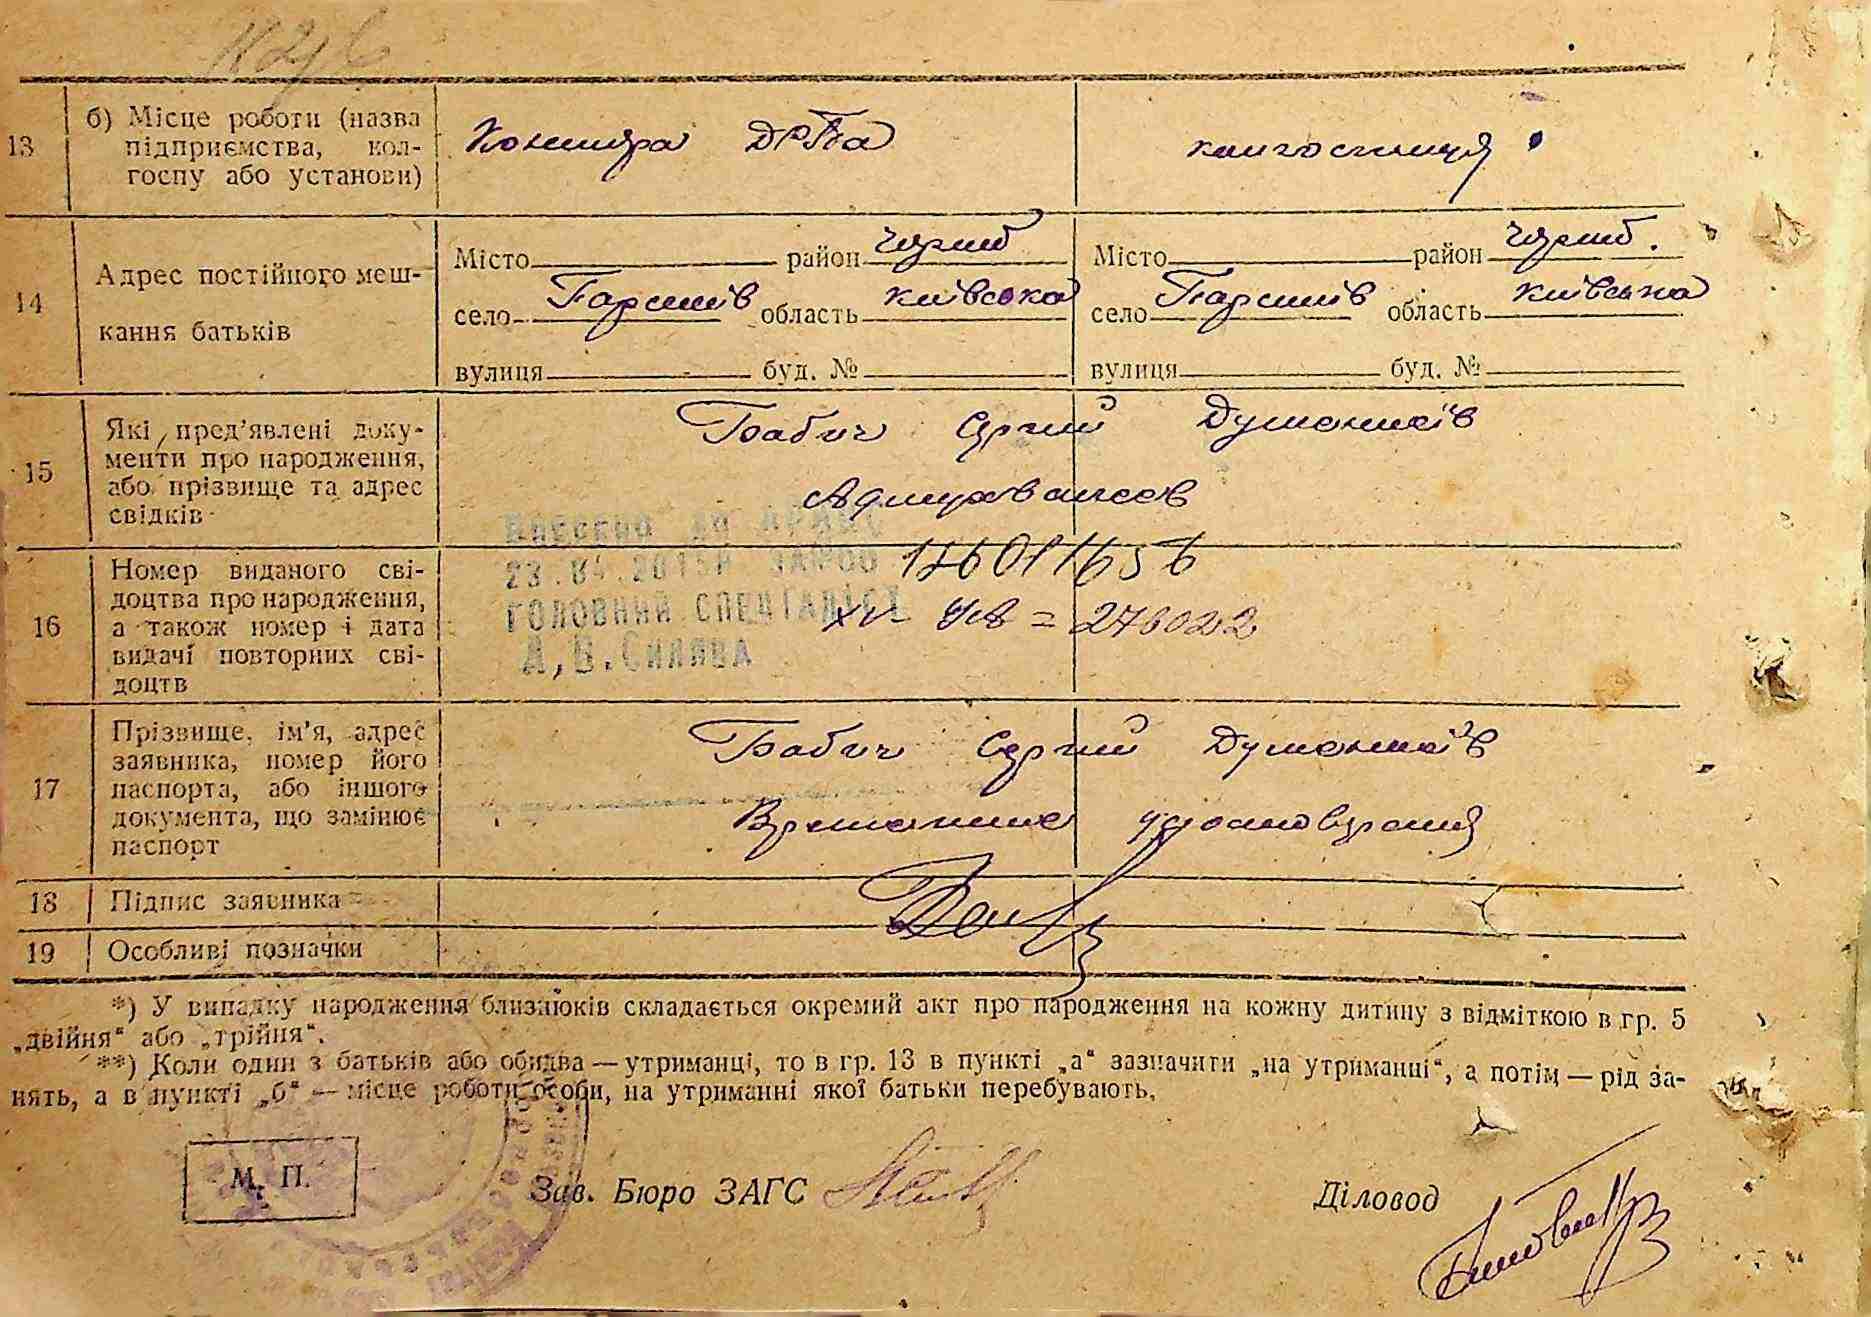 13
б) Місце роботи (назва
підприємства, кол-
госпу або установи)
Контора
колгоспниця
14
Адрес постійного меш-
кання батьків
Місто район Чорноб
село Паришів область київська
вулиця буд. №
Місто район Чорноб.
село Паришів область київська
вулиця буд. №
15
Які пред'явлені доку-
менти про народження,
або прізвище та адрес
свідків
Бабич Сергій
16
Номер виданого сві-
доцтва про народження,
а також номер і дата
видачі повторних сві-
доцтв
Внесено до
ГОЛОВНИЙ СПЕЦІАЛІСТ
= 276022
17
Прізвище, ім'я, адрес
заявника, номер його
паспорта, або іншого
документа, що замінює
паспорт
Бабич Сергій
Временное удостоверения
18 Підпис заявника
19 Особливі позначки
*) У випадку народження близнюків складається окремий акт про народження на кожну дитину з відміткою в гр. 5
„двійня“ або „трійня“.
**) Коли один з батьків або обидва — утриманці, то в гр. 13 в пункті „а“ зазначити „на утриманні“, а потім — рід за-
нять, а в пункті „б“ — місце роботи особи, на утриманні якої батьки перебувають.
М. П.
Зав. Бюро ЗАГС
Діловод